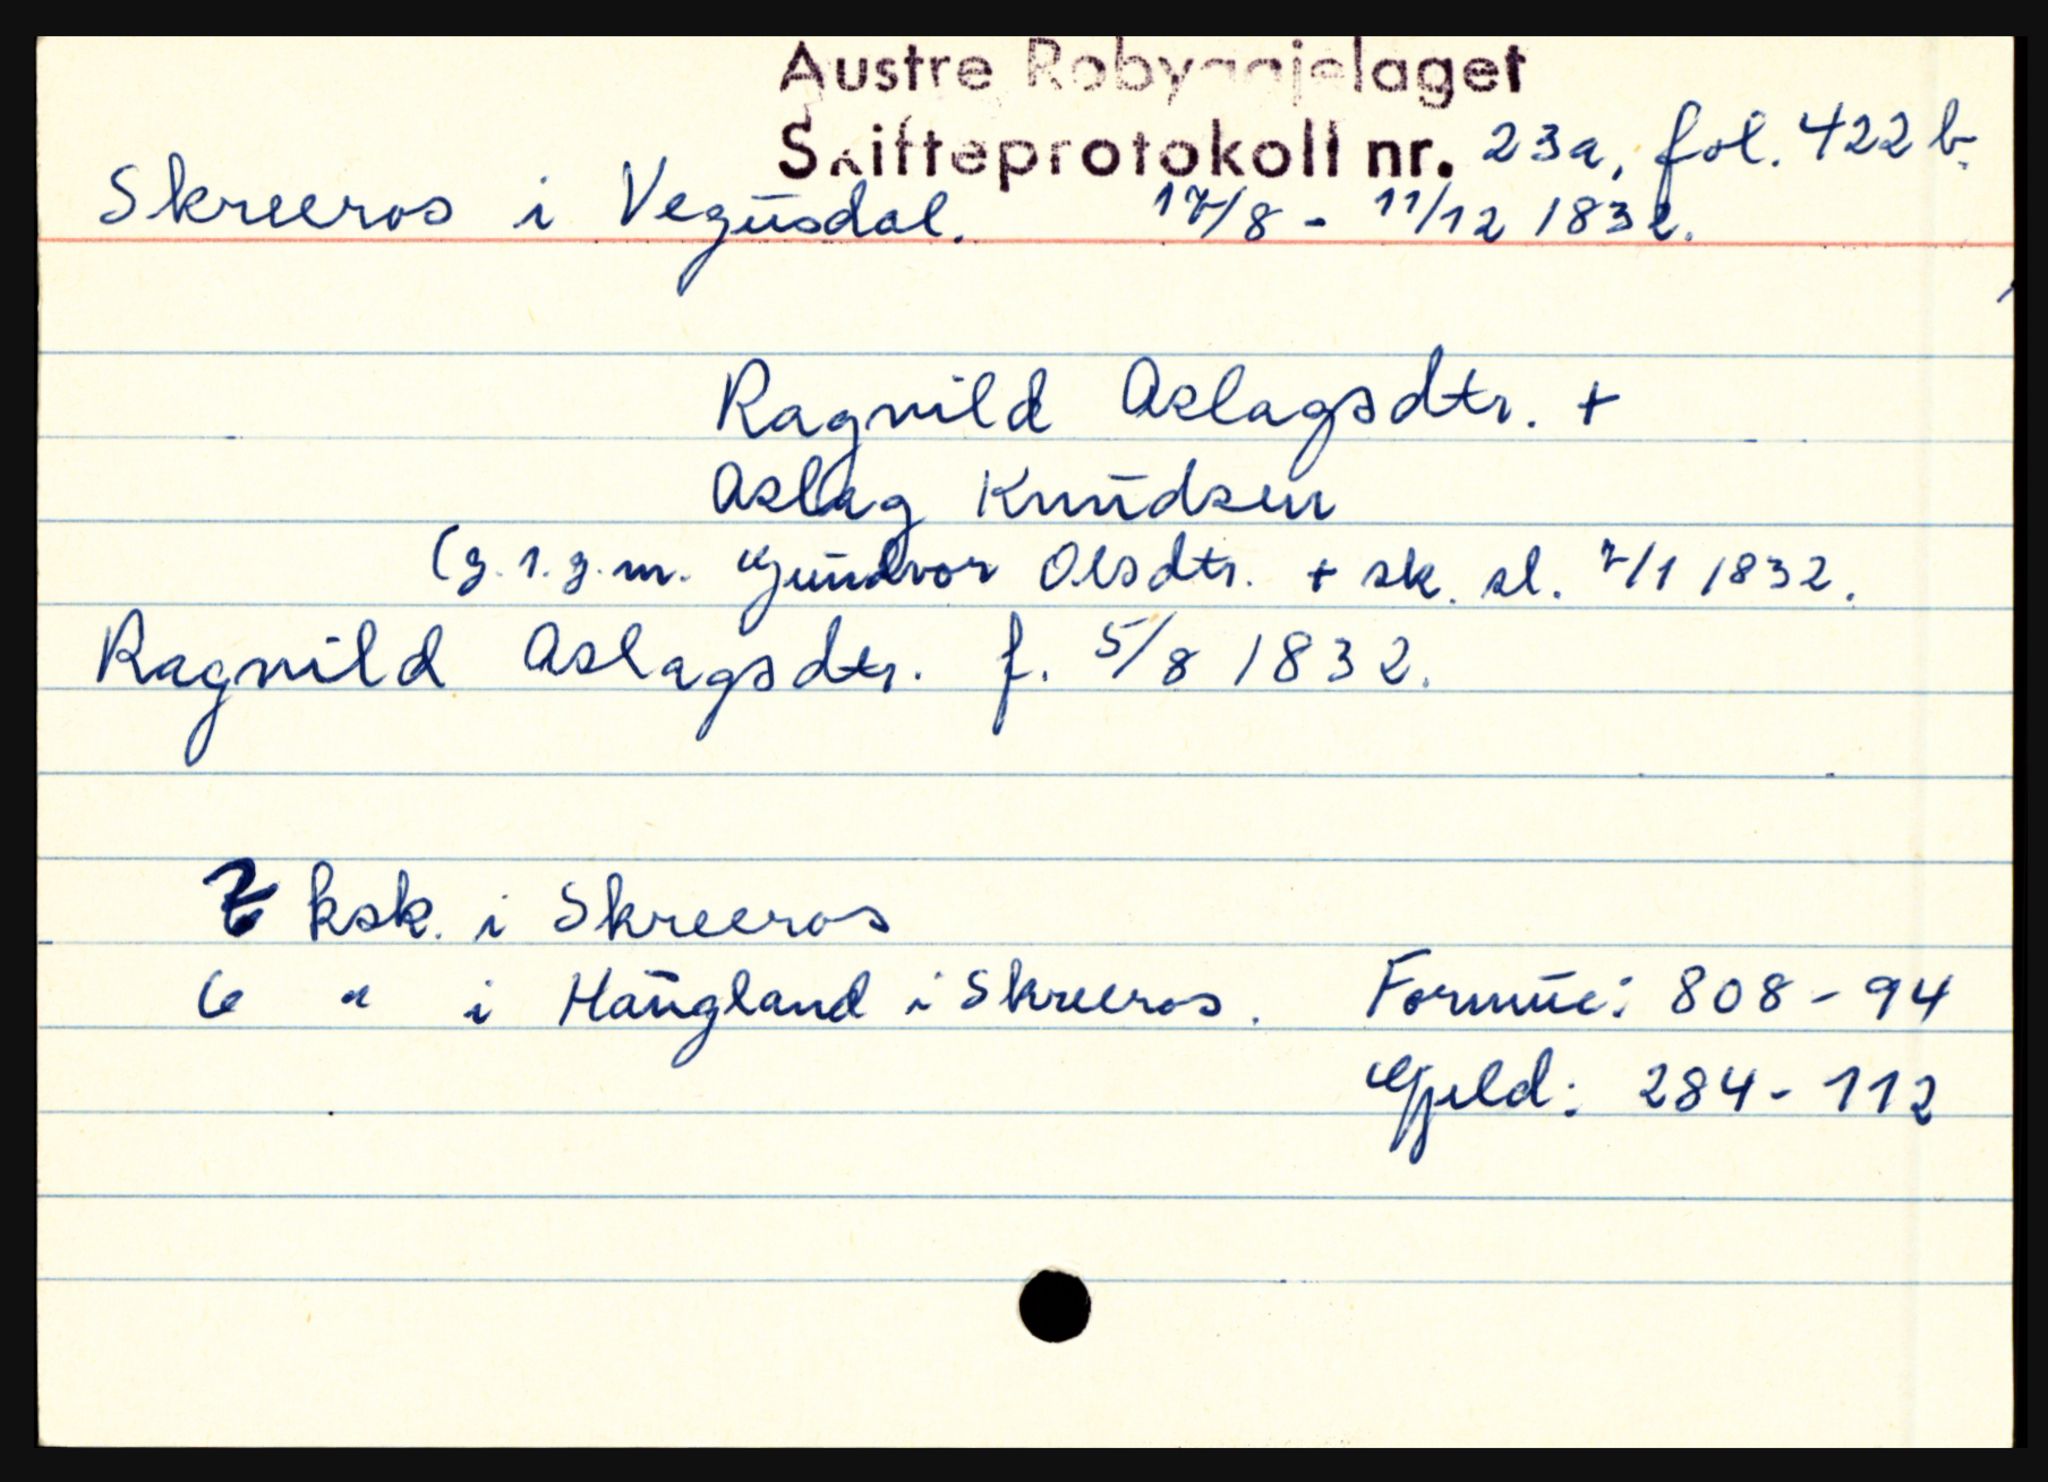 Austre Robyggjelaget
Skifteprotokoll nr. 23a, fol. 422 b.
Skreeros i Vegusdal. 17/8 - 11/12 1832.
Ragnild Aslagsdtr. +
Aslag Knudsen
(g. 1. g. m. Gundvor Olsdtr. + sk. sl. 7/1 1832.
Ragnild Aslagsdtr. f. 5/8 1832.
ksk. i Skreeros
6 " i Haugland i Skreeros. Formue: 808 - 94
Gjeld: 284 - 112